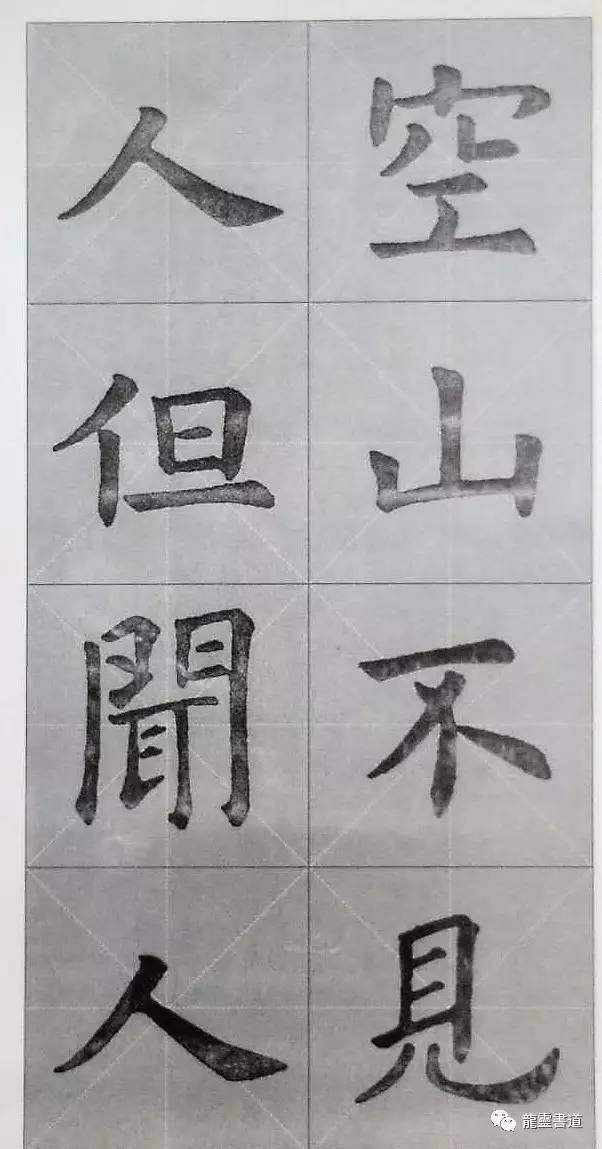 空山不見
人但聞人
龍靈書道